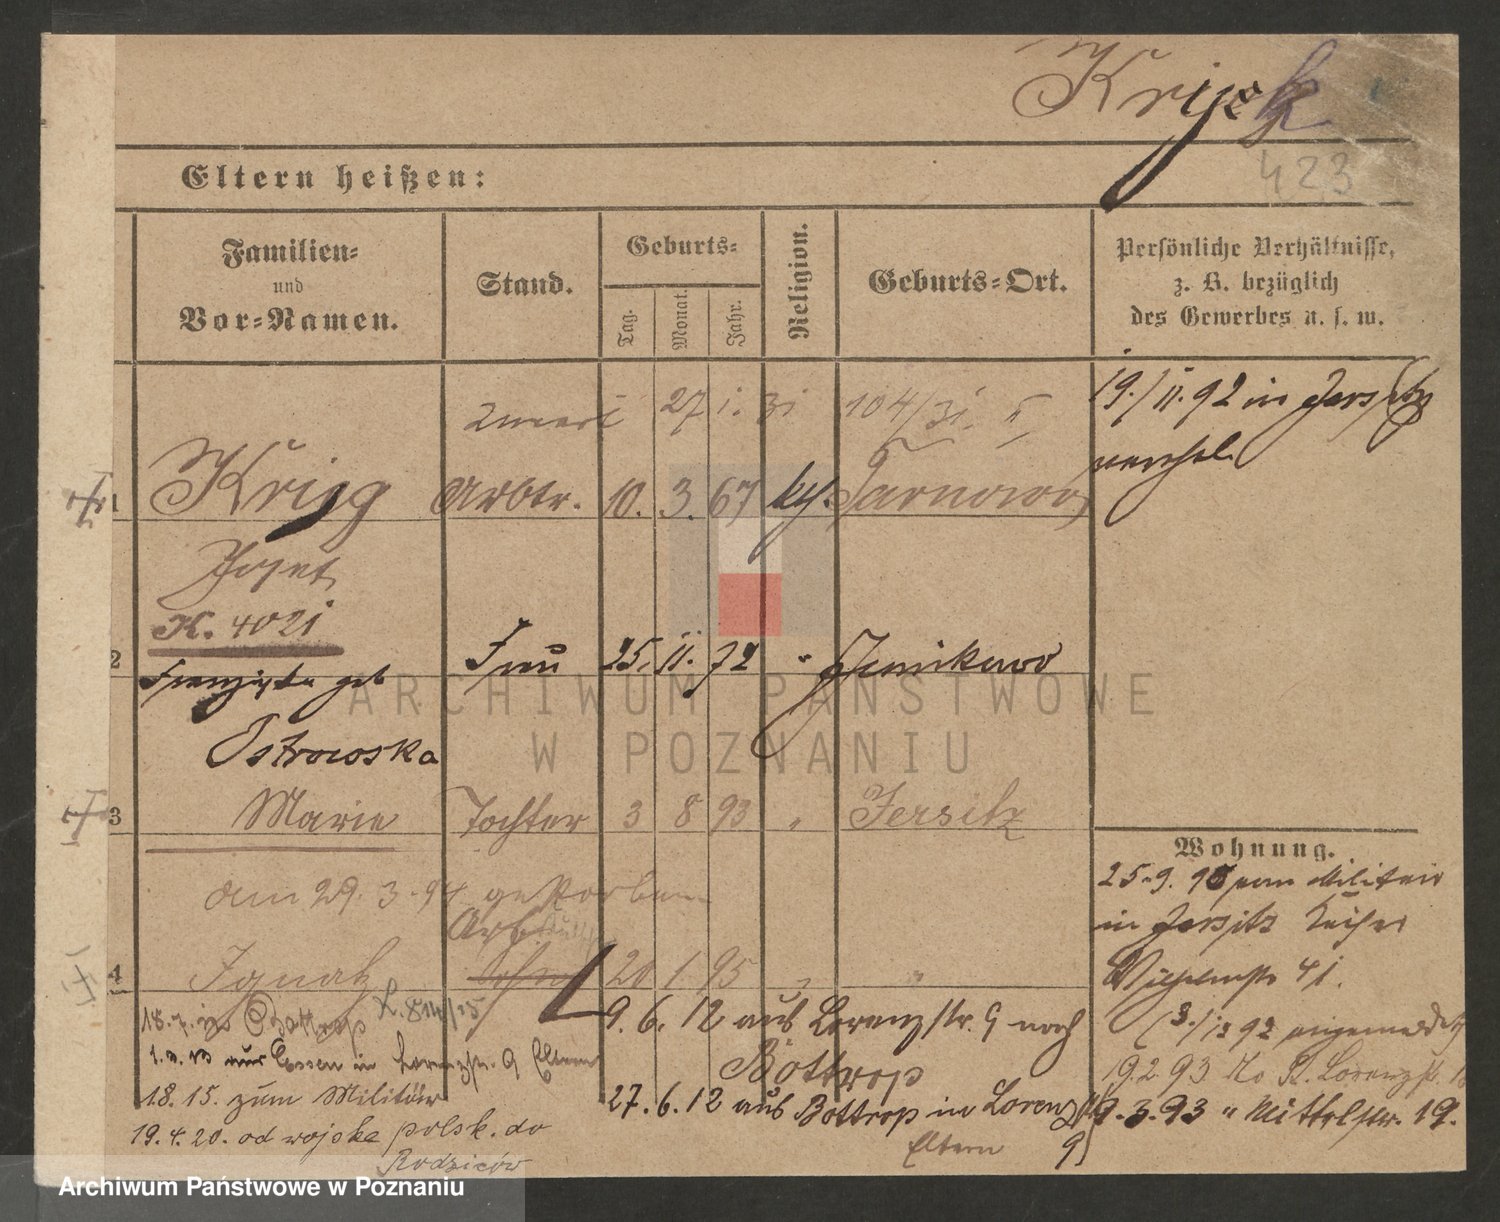 Krijek
423
Eltern heißen:
Familien-
und
Vor-Namen.
Stand.
Geburts-
Tag.
Monat.
Jahr.
Religion.
Geburts-Ort.
Persönliche Verhältnisse,
z. B. bezüglich
des Gewerbes u. s. w.
27 1. 31 104/31. II
19./11.92 in Jersitz
verehel.
1 Krieg Arbtr. 10. 3. 67 kth. Tarnowo
Josef
K. 4021
2 Franziska geb Frau 25. 11. 72 " Junikowo
Ostrowska
3 Marie Tochter 3 8 93 " Jersitz
am 29. 3. 94 gestorben
Arb
4 Ignatz Sohn 20 1 95 " "
Wohnung.
25.9.90 vom Militair
in Jersitz
Wilhelmstr 41.
92 angemeldet
19.2.93 No St. Lorenzstr.
9.3.93 " Mittelstr. 19.
18.7. in Bottrop
aus Essen in Lorenzstr. 9 Eltern
18. 15. zum Militär
19.4.20. od wojska polsk. do
Rodziców
9. 6. 12 aus Lorenzstr. 9 nach
Bottrop
27. 6. 12 aus Bottrop in Lorenzstr
Eltern 9)
ARCHIWUM PAŃSTWOWE
W POZNANIU
Archiwum Państwowe w Poznaniu